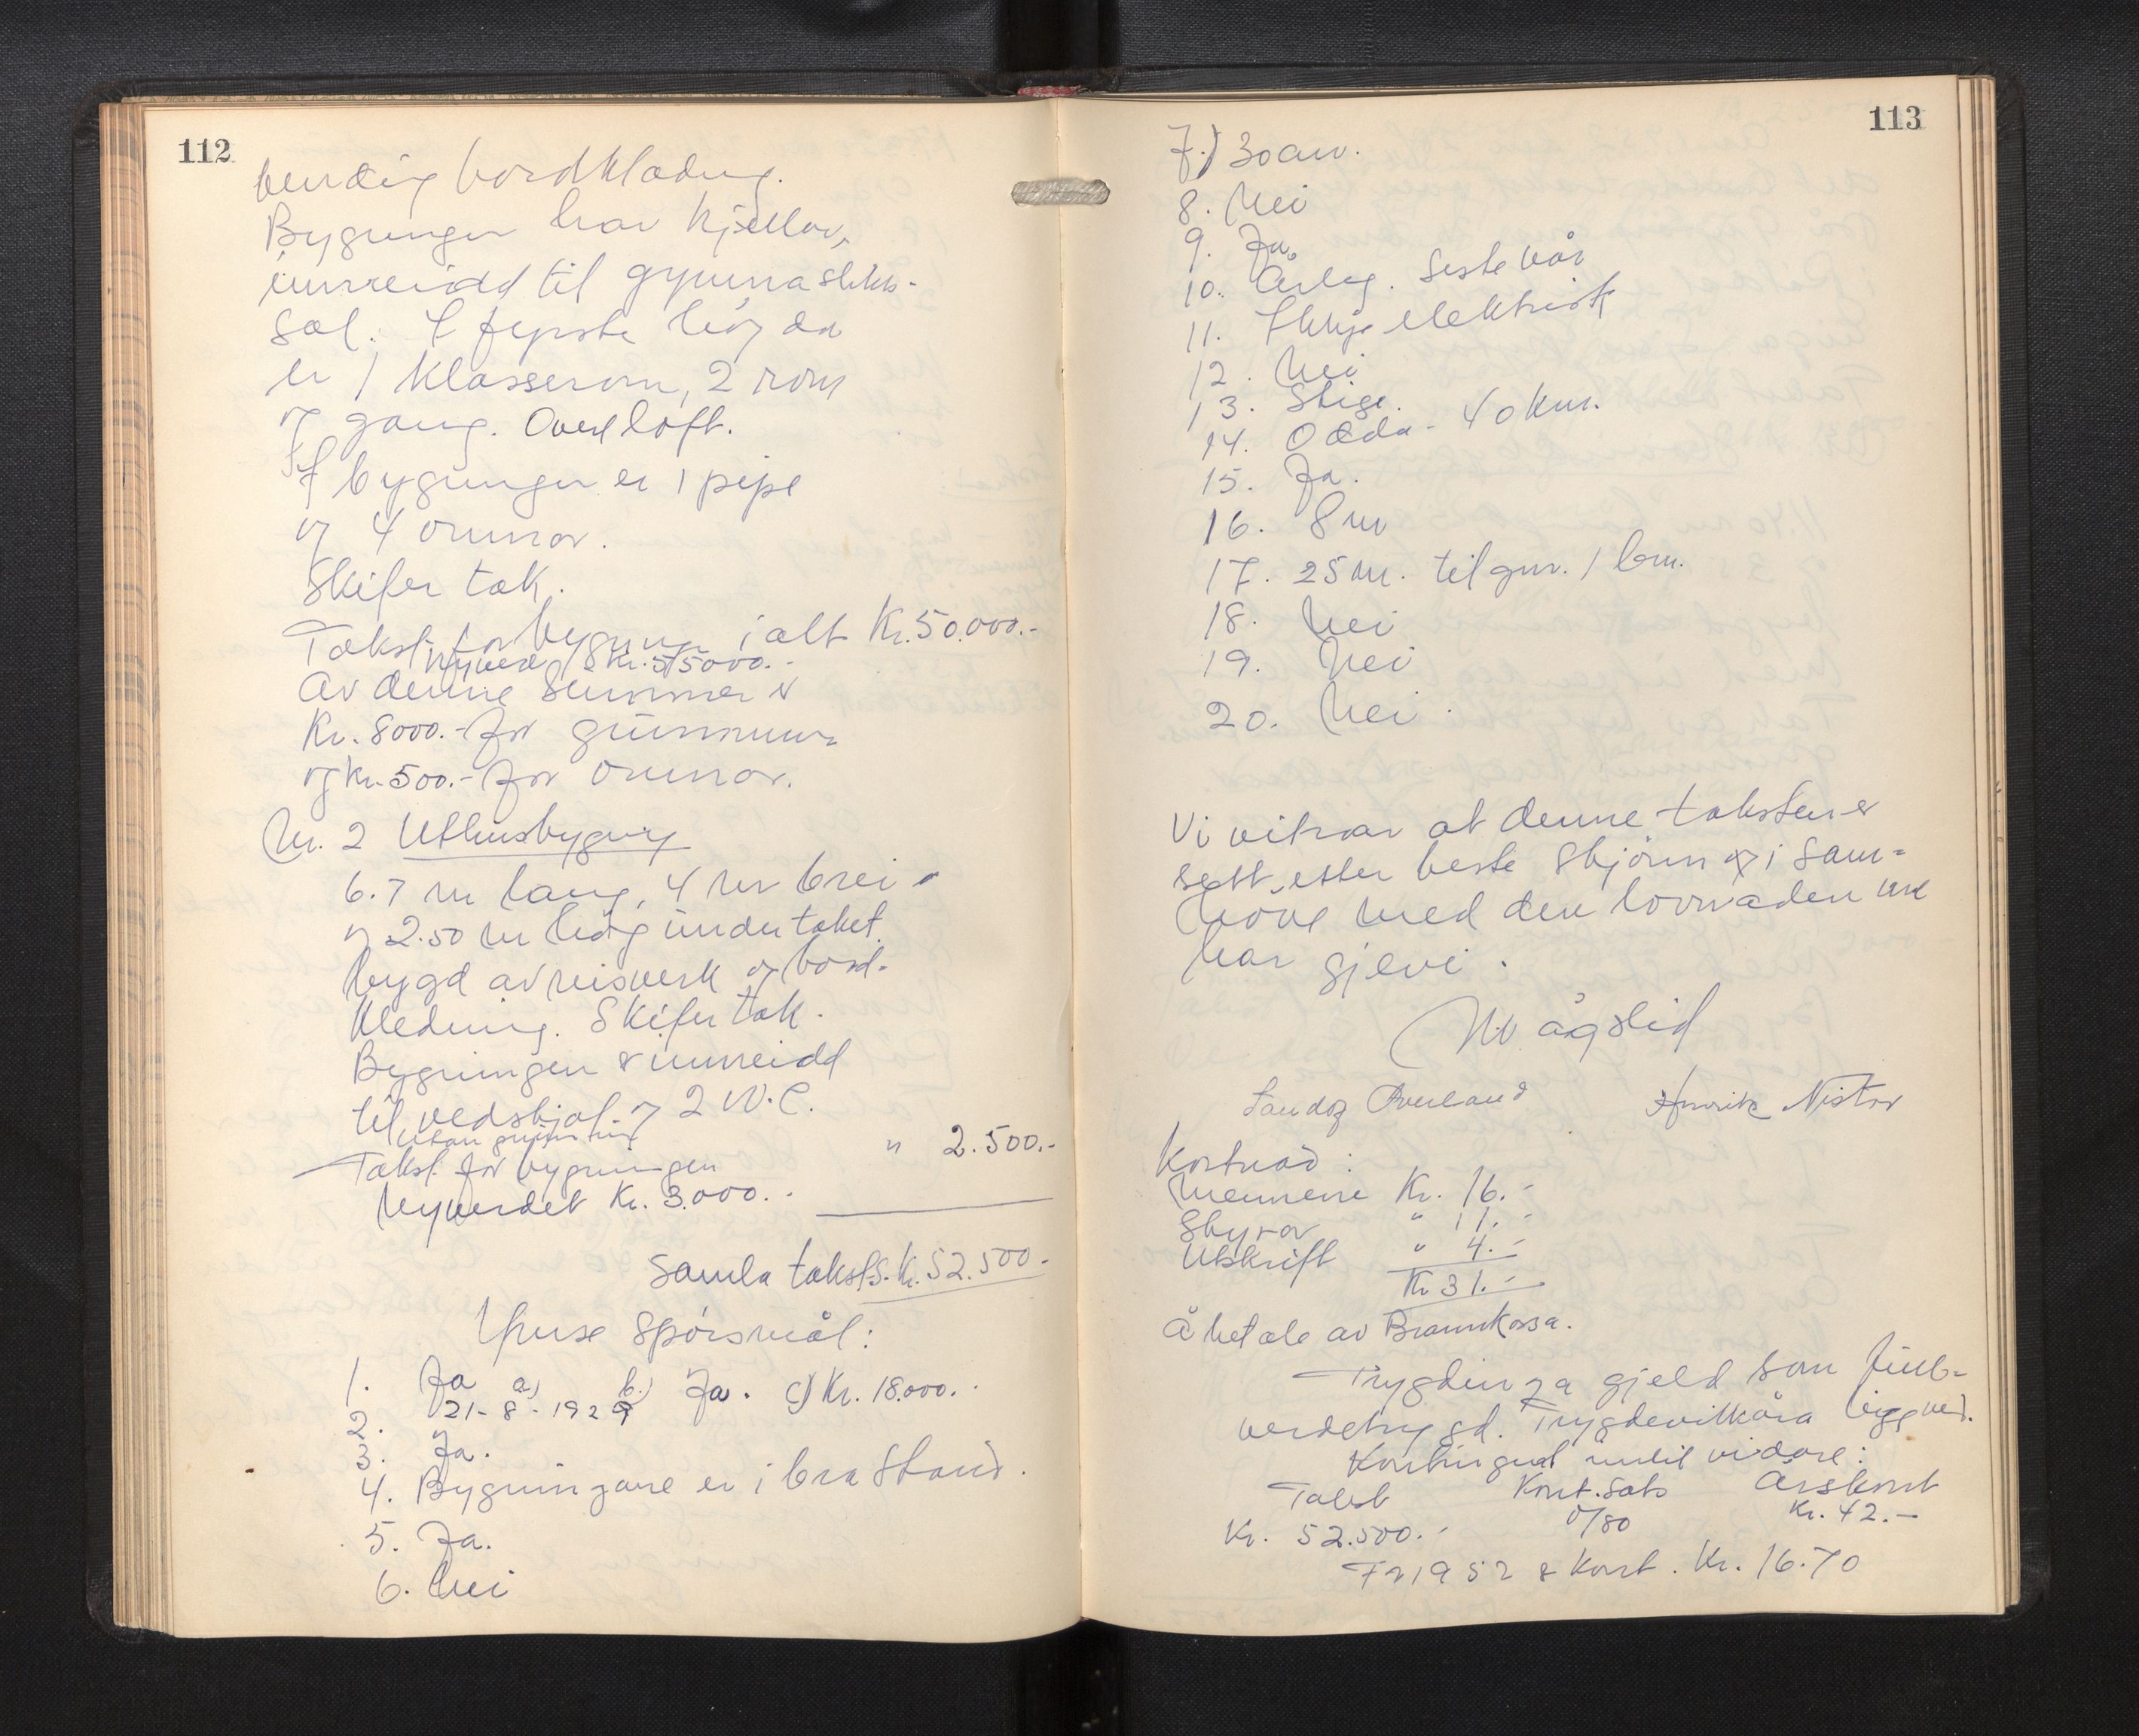 112
vendig bordklædnig.
Bygningen har kjellar,
innreidd til gymnastikk-
sal. I fyrste høgda
er 1 klasserom, 2 rom
og gang. Overloft.
I bygningen er 1 pipe
og 4 omnar.
Skifer tak.
Takst for bygningen ialt Kr. 50.000.-
Nyverdi Kr. 55000.-
Av denne summen er
Kr. 8000.- for grunnmur
og Kr. 500.- for omnar.
Nr. 2 Uthusbygnig
6.7 m lang, 4 m brei
og 2.50 m høg under taket
bygd av reisverk og bord-
kledning. Skifer tak.
Bygningen er innreidd
til vedskjol og 2 W.C.
utan grunnmur
Takst for bygningen " 2.500.-
Nyverdet Kr. 3.000.-
Samla takst S. Kr. 52.500.-
Ymse spørsmål:
1. Ja a) b) Ja. c) Kr. 18.000.-
2. 21-8-1929
3. Ja.
4. Bygningane er i bra stand.
5. Ja.
6. Nei
113
7.) 30 cm.
8. Nei
9. Ja
10. Årleg. Siste vår
11. Ikkje elektrisk
12. Nei
13. Stige.
14. Odda - 40 km.
15. Ja.
16. 8 m
17. 25 m. til gnr. 1 bnr.
18. Nei
19. Nei
20. Nei.
Vi vitnar at denne taksten er
sett etter beste skjønn og i sam-
høve med den lovnaden me
har gjeve.
M Vågslid
Sandog Øverland Henrik Nistov
Kostnad:
Mennene Kr. 16.-
Styrar " 11.-
Utskrift " 4.-
Kr 31.-
Å betale av Brannkassa.
Trygdinga gjeld som full-
verdetrygd. Trygdevilkåra ligg ved.
Kontingent inntil vidare:
Takst Kont. sats Årskont
Kr. 52.500.- 0/80 Kr. 42.-
For 1952 er kont. Kr. 16.70